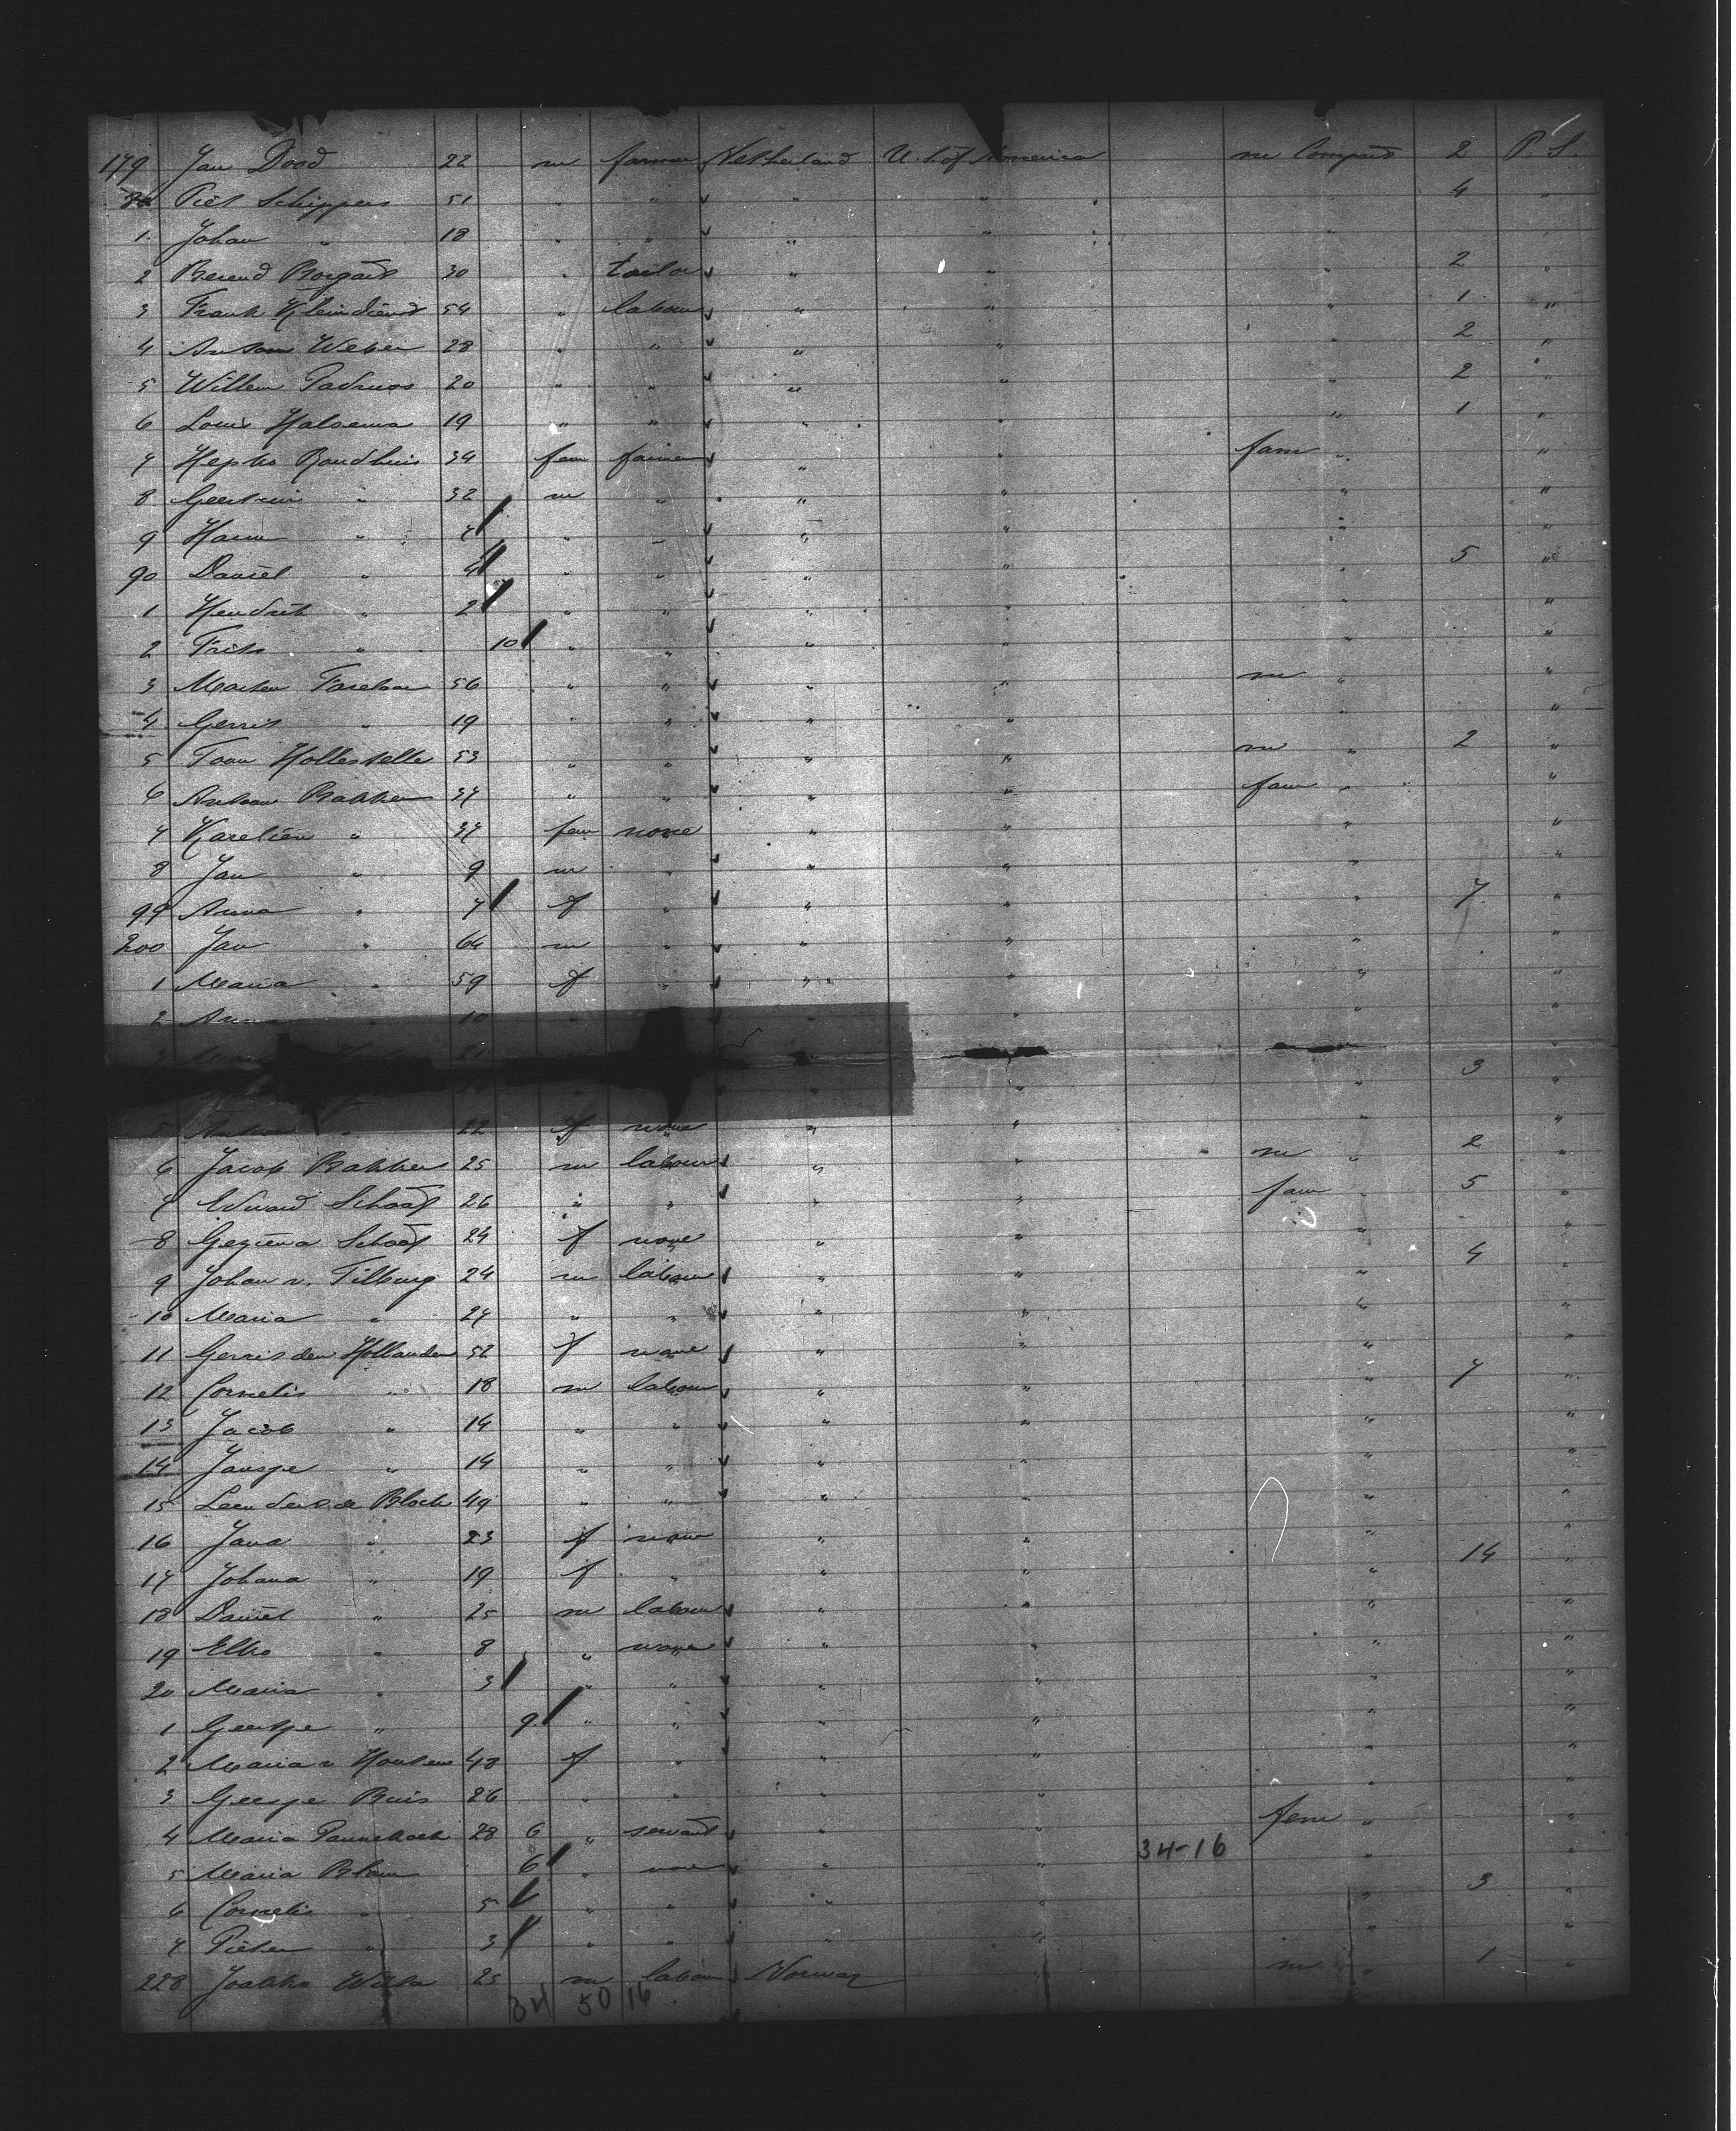 179 Jan Dood 22 m farmer Netherland U. S. of America m Compart 2 P. S.
80 Piet Schippers 51 " " " " " 4 "
1 Johan " 18 " " " " " "
2 Berend Borgart 30 " tailor " " " 2 "
3 Frank Kleindienst 54 " labour " " " 1 "
4 Antoon Weber 28 " " " " " 2 "
5 Willem 20 " " " " " 2 "
6 Louis Halsema 19 " " " " " 1 "
7 Hepko Boudhuis 34 fem farmer " " fam " "
8 32 m " " " " "
9 Harm " 7 " " " " " "
90 Daniel " 4 " " " " " 5 "
1 Hendrik " 2 " " " " " "
2 Frits " 10 " " " " " "
3 Marten 56 " " " " m " "
4 Gerrit " 19 " " " " " "
5 Toon Hollestelle 53 " " " " m " 2 "
6 Antoon Bakker 37 " " " " fam " "
7 Karelien " 37 fem none " " " "
8 Jan " 9 m " " " " "
99 Anna " 7 f " " " " 7 "
200 Jan " 64 m " " " " "
1 Maria " 59 f " " " " "
2 Anna " 10 " " " "
3 21 " " "
" " " 3 "
5 " 22 f none " " " "
6 Jacob Bakker 25 m labour " " m " 2 "
7 Edward Schaaf 26 " " " " fam " 5 "
8 Geziena Schaaf 24 f none " " " "
9 Johan v. Tilburg 24 m labour " " " 4 "
10 Maria " 27 " " " " " "
11 Gerrit den Hollander 52 f none " " " "
12 Cornelis " 18 m labour " " " 7 "
13 Jacob " 14 " " " " " "
14 Jansje " 14 " " " " " "
15 Leendert de Block 49 " " " " " "
16 Jana " 23 f none " " " "
17 Johana " 19 f " " " " 14 "
18 Daniel " 25 m labour " " " "
19 Elko " 8 " none " " " "
20 Maria " 3 " " " " " "
1 Geertje " 9 " " " " " "
2 Maria v Houten 48 f " " " " "
3 Geesje Buis 26 " " " " " "
4 Maria Pannekoek 28 6 " servant " " fem " "
5 Maria Blom 6 " none " " 34-16 " "
6 Cornelis " 5 " " " " " 3 "
7 Pieter " 3 " " " " " "
228 25 m labour Norway " m " 1 "
34 50 16